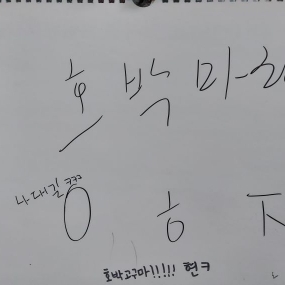 호박마
나대길ㅋㅋㅋ
ㅇ ㅎ
호박고구마!!!!! 현ㅋ